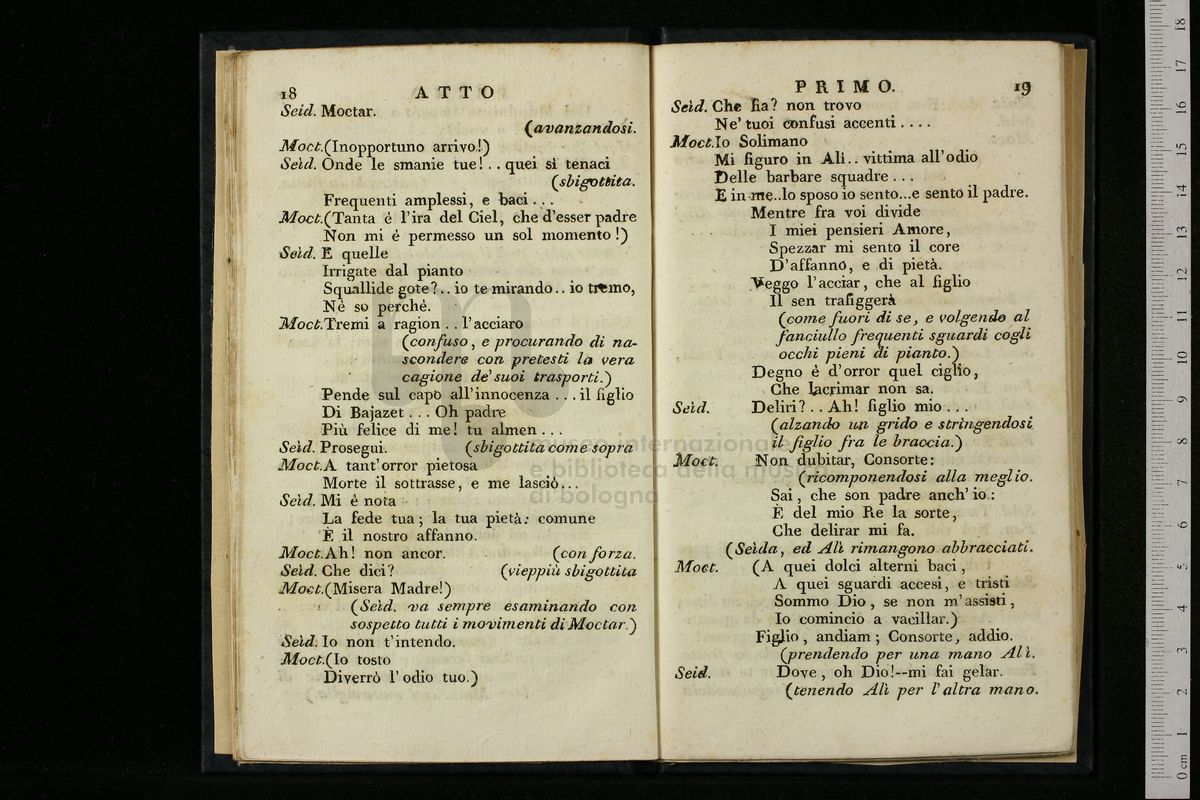 18 ATTO
Seid. Moctar.
(avanzandosi.
Moct.(Inopportuno arrivo!)
Seìd. Onde le smanie tue!.. quei sì tenaci
(sbigottita.
Frequenti amplessi, e baci...
Moct.(Tanta è l'ira del Ciel, che d'esser padre
Non mi é permesso un sol momento!)
Seìd. E quelle
Irrigate dal pianto
Squallide gote?.. io te mirando.. io tremo,
Nè so perché.
Moct.Tremi a ragion.. l'acciaro
(confuso, e procurando di na-
scondere con pretesti la vera
cagione de' suoi trasporti.)
Pende sul capo all'innocenza...il figlio
Di Bajazet... Oh padre
Più felice di me! tu almen...
Seìd. Prosegui. (sbigottita come sopra
Moct.A tant'orror pietosa
Morte il sottrasse, e me lasciò...
Seìd. Mi è nota
La fede tua; la tua pietà: comune
È il nostro affanno.
Moct.Ah! non ancor. (con forza.
Seìd. Che dici? (vieppiù sbigottita
Moct.(Misera Madre!)
(Seìd. va sempre esaminando con
sospetto tutti i movimenti di Moctar.)
Seìd. Io non t'intendo.
Moct.(Io tosto
Diverrò l'odio tuo.)
PRIMO. 19
Seìd. Che fia? non trovo
Ne' tuoi confusi accenti....
Moct.Io Solimano
Mi figuro in Alì.. vittima all'odio
Delle barbare squadre...
E in me..lo sposo io sento...e sento il padre.
Mentre fra voi divide
I miei pensieri Amore,
Spezzar mi sento il core
D'affanno, e di pietà.
Veggo l'acciar, che al figlio
Il sen trafiggerà
(come fuori di se, e volgendo al
fanciullo frequenti sguardi cogli
occhi pieni di pianto.)
Degno é d'orror quel ciglio,
Che lacrimar non sa.
Seìd. Deliri?.. Ah! figlio mio...
(alzando un grido e stringendosi
il figlio fra le braccia.)
Moct. Non dubitar, Consorte:
(ricomponendosi alla meglio.
Sai, che son padre anch'io:
È del mio Re la sorte,
Che delirar mi fa.
(Seìda, ed Alì rimangono abbracciati.
Moct. (A quei dolci alterni baci,
A quei sguardi accesi, e tristi
Sommo Dio, se non m'assisti,
Io comincio a vacillar.)
Figlio, andiam; Consorte, addio.
(prendendo per una mano Alì.
Seìd. Dove, oh Dio!--mi fai gelar.
(tenendo Alì per l'altra mano.
museo internazionale
e biblioteca della musica
di bologna
0 cm 1 2 3 4 5 6 7 8 9 10 11 12 13 14 15 16 17 18